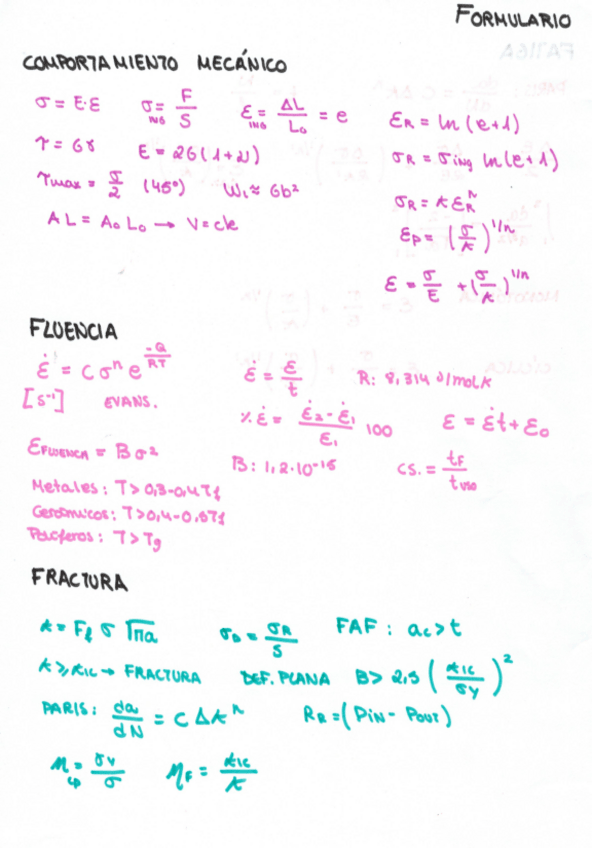 FORMULARIO
COMPORTAMIENTO MECÁNICO
σ = E·ε   σ_ING = F/S   ε_ING = ΔL/L₀ = e
ε_R = ln(e+1)
τ = Gγ   E = 2G(1+ν)
σ_R = σ_ing ln(e+1)
τ_max = σ/2 (45°)   W_L ≈ Gb²
σ_R = k ε_R^n
A L = A₀ L₀ → V = cte
ε_P = (σ/k)^1/n
ε = σ/E + (σ/k)^1/n
FLUENCIA
ε̇ = C σⁿ e^(-Q/RT)   ε̇ = ε/t   R: 8,314 J/molK
[s⁻¹]   EVANS.
% ε̇ = (ε̇₂ - ε̇₁)/ε̇₁ 100   ε = ε̇t + ε₀
ε_FLUENCIA = Bσ²
B: 1,2·10⁻¹⁵   CS. = t_F/t_uso
Metales: T > 0,3-0,4Tf
Cerámicos: T > 0,4-0,5Tf
Polímeros: T > Tg
FRACTURA
k = F_f σ √πa   σ_D = σ_R/S   FAF: ac > t
k ≥ k_IC → FRACTURA   DEF. PLANA   B > 2,5 (k_IC/σ_y)²
PARIS: da/dN = C Δkⁿ   R_R = (P_IN - P_OUT)
M_CP = σ_y/σ   M_F = k_IC/k